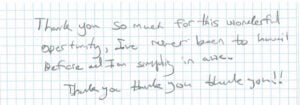 Thank you so much for this wonderful
opertunity, I've never been to hawaii
Before and I'm simply in awe.
Thank you thank you thank you!!